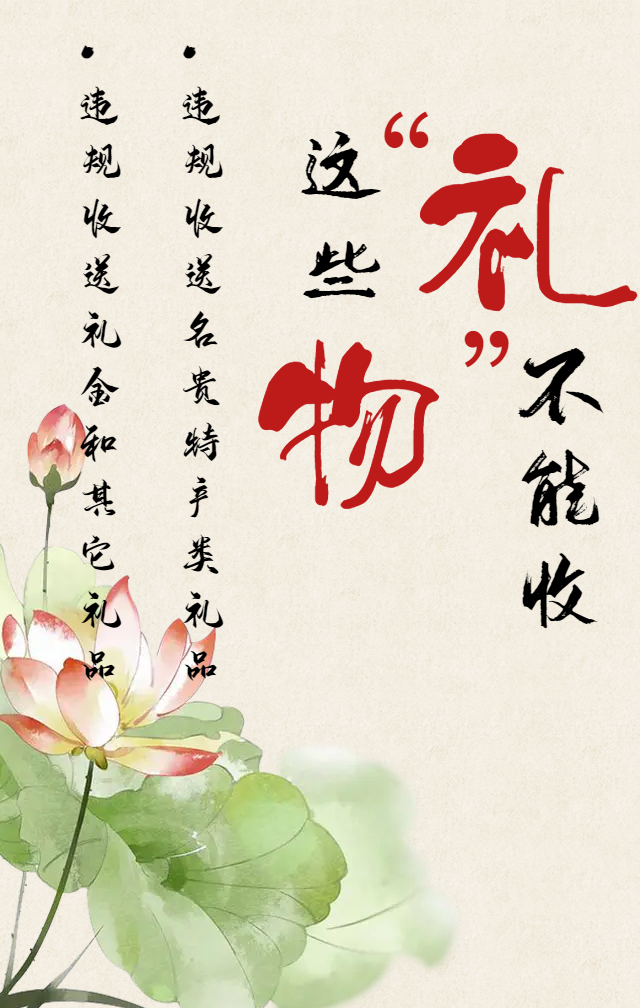 这些
“礼
物”
不能收
违规收送名贵特产类礼品
违规收送礼金和其它礼品